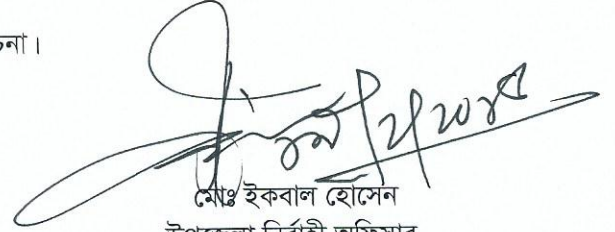 চনা।
মোঃ ইকবাল হোসেন
উপজেলা নির্বাহী অফিসার